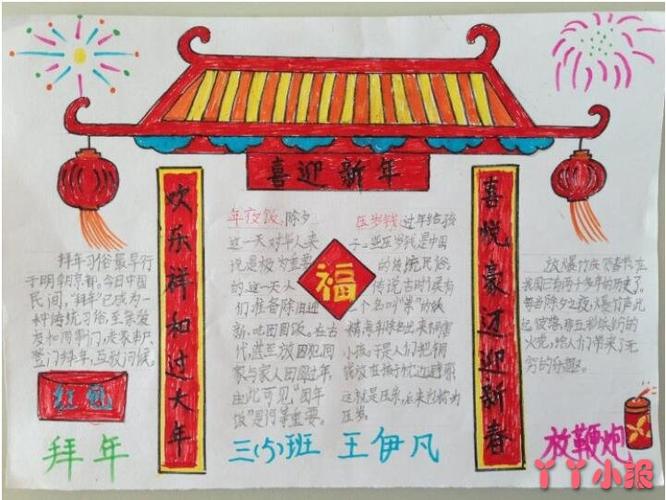 喜迎新年
欢乐祥和过大年
喜悦豪迈迎新春
福
拜年习俗最早行
于明朝京都。今日中国
民间，"拜年"已成为一
种传统习俗，至亲爱
友如同事门,
登门拜年，互致问候。
红包
拜年
年夜饭,除夕
这一天对华人来
说是极为重要
的.这一天人
们准备除旧迎
新，吃团圆饭。在古
代,
家与家人团圆过年，
由此可见,"团年
饭"是何等重要。
压岁钱,过年给孩
子压岁钱是中国
的传统民俗。
传说古时候有
个名叫"祟"的妖
精专
小孩,于是人们把铜
钱放在孩子枕边避邪
这就是压祟,后来
压岁。
三(5)班 王伊凡
放爆竹庆贺春节在
我国已有两千多年的历史了。
每当除夕之夜,爆竹声此
起彼落,
火花,给人们带来了无
穷的乐趣。
放鞭炮
丫丫小报